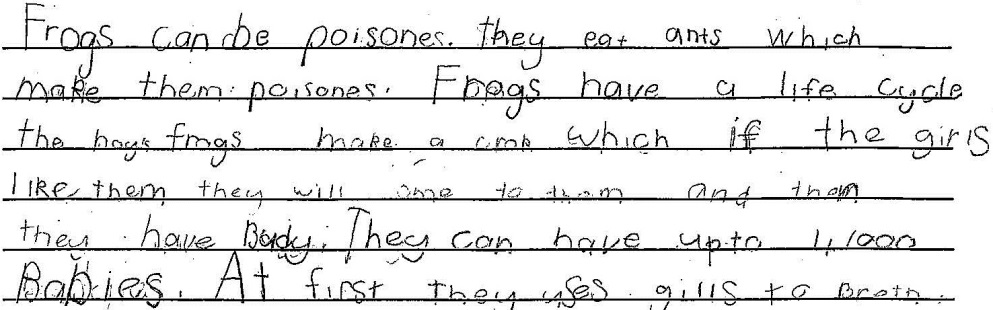 Frogs can be poisones. they eat ants which
make them poisones. Frogs have a life cycle
the boys frogs make a which if the girls
like them they will ome to them and then
they have Bady. They can have up to 1,1000
Babies. At first they uses gills to Breth.